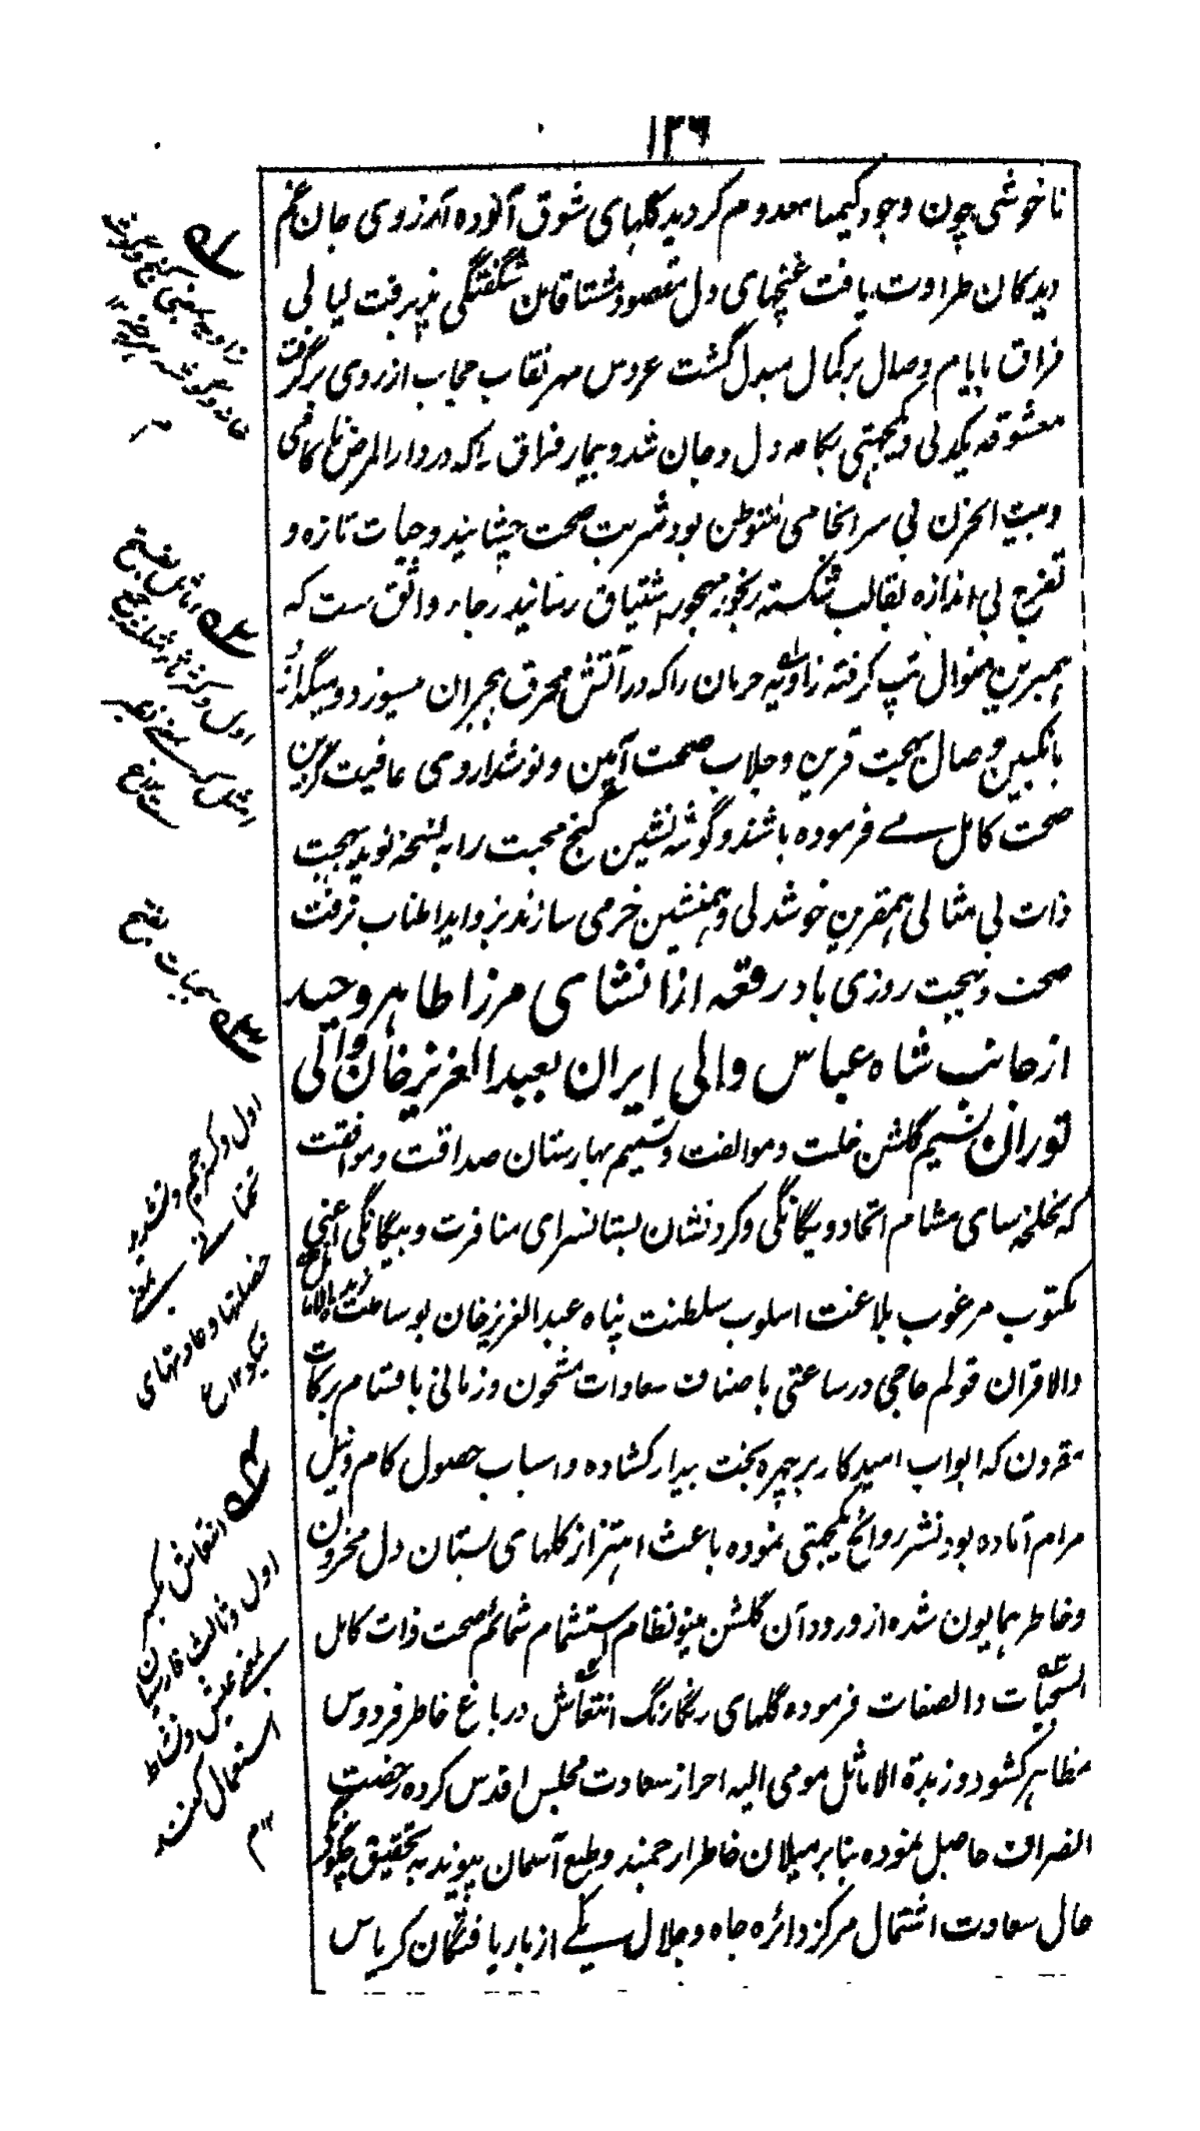 ۱۳۶
ناخوشی چون وجود کیمیا معدوم کردید کلهای شوق آلوده آرزوی جان غم
دیدکان طراوت یافت غنچهای دل مقصود مشتاقان شگفتگی پذیرفت لیالی
فراق بایام وصال برکمال مبدل گشت عروس مهر نقاب حجاب از روی برگرفت
معشوقه یکدلی و یکجهتی بکامه دل و جان شد و بیمار فراق را که در دارالمرض ناکامی
و بیت الحزن بی سرانجامی متوطن بود شربت صحت چشانید و حیات تازه و
تفرح بی اندازه بقالب شکسته رنجور مهجور اشتیاق رسانید رجاء واثق ست که
بهمبرین منوال تپ کرفته زاویه حرمان را که در آتش محرق هجران میسوزد و میگدازد
بانگبین وصال بهجت قرین و جلاب صحت آیین و نوشداروی عافیت گزین
صحت کامل می فرموده باشند و گوشه نشین کنج محبت را به نسخه نوید بهجت
ذات بی مثالی همقرین خوشدلی و همنشین خرمی سازند بزواید اطناب نرفت
صحت و بهجت روزی باد رقعه از انشای مرزا طاهر وحید
از جانب شاه عباس والی ایران بعبدالعزیز خان والی
توران نسیم گلشن خلت و موالفت و تسنیم بهارستان صداقت و موافقت
که نخلخه سای مشام اتحاد و یگانگی و کرد نشان بستانسرای منافرت و بیگانگی اعنی
مکتوب مرغوب بلاغت اسلوب سلطنت پناه عبدالعزیز خان بوساطت زبدة الاماثل
والاقران قولم حاجی در ساعتی باصناف سعادات مشحون و زمانی باقسام برکات
مقرون که ابواب امید کار بر چهره بخت بیدار کشاده و اسباب حصول کام و نیل
مرام آماده بود نشر روائح یکجهتی نموده باعث اهتزاز کلهای بستان دل مخزون
و خاطر همایون شده از ورود آن گلشن مینو نظام استشمام شمائم صحت ذات کامل
السجیات والصفات فرموده گلهای رنگارنگ انتعاش در باغ خاطر فردوس
مظاهر کشود و زبدة الاماثل مومی الیه احراز سعادت مجلس اقدس کرده رخصت
انصراف حاصل نموده بنابر میلان خاطر ارجمند و طبع آسمان پیوند به تحقیق چگونگی
حال سعادت اشتمال مرکز دائره جاه و جلال یکی از باریافتگان کریاس
زاویه بمعنی کنج و گوشه
خانه و گوشه هر چیز
سجیات بفتح
اول و کسر جیم و تشدید
تحتانی بمعنی
خصلتها و عادتهای
نیکو ۱۲ ع
انتعاش بکسر
اول و ثالث فارسیان
بمعنی عیش و نشاط
استعمال کنند
۱۲ م